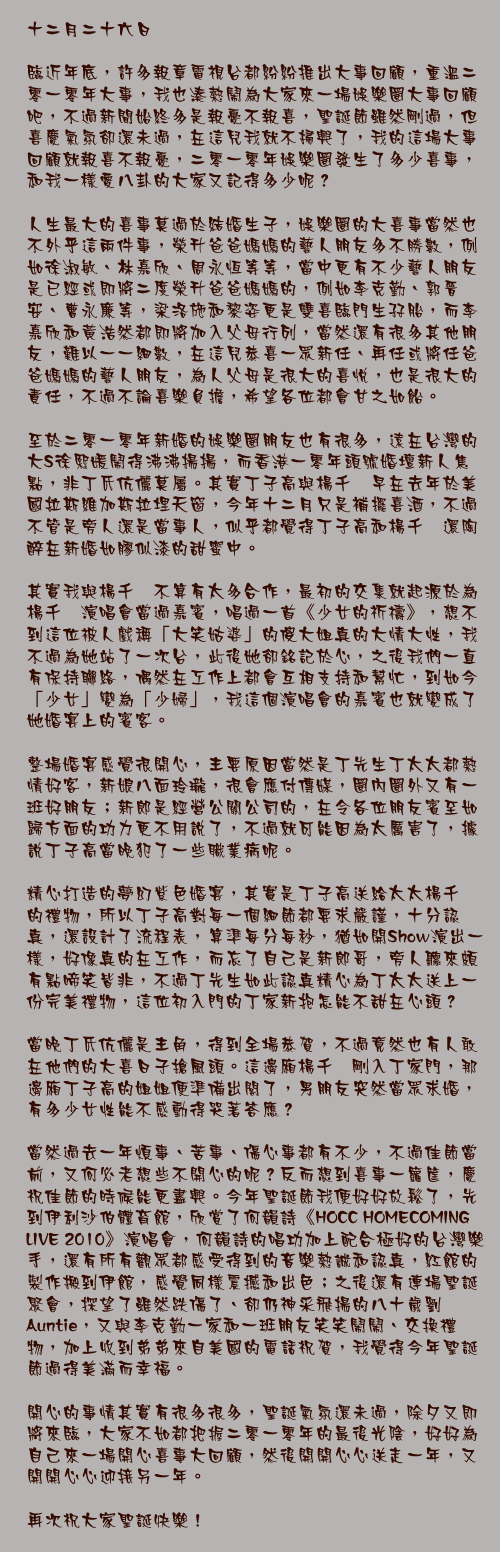 十二月二十六日
臨近年底，許多報章電視台都紛紛推出大事回顧，重溫二
零一零年大事，我也湊熱鬧為大家來一場娛樂圈大事回顧
吧，不過新聞始終多是報憂不報喜，聖誕節雖然剛過，但
喜慶氣氛卻還未過，在這兒我就不掃興了，我的這場大事
回顧就報喜不報憂，二零一零年娛樂圈發生了多少喜事，
和我一樣愛八卦的大家又記得多少呢？
人生最大的喜事莫過於結婚生子，娛樂圈的大喜事當然也
不外乎這兩件事，榮升爸爸媽媽的藝人朋友多不勝數，例
如徐淑敏、林嘉欣、周永恆等等，當中更有不少藝人朋友
是已經或即將二度榮升爸爸媽媽的，例如李克勤、郭晉
安、曹永廉等，梁洛施和黎姿更是雙喜臨門生孖胎，而李
嘉欣和黃浩然都即將加入父母行列，當然還有很多其他朋
友，難以一一細數，在這兒恭喜一眾新任、再任或將任爸
爸媽媽的藝人朋友，為人父母是很大的喜悅，也是很大的
責任，不過不論喜樂負擔，希望各位都會甘之如飴。
至於二零一零年新婚的娛樂圈朋友也有很多，遠在台灣的
大S徐熙媛鬧得沸沸揚揚，而香港一零年頭號婚壇新人焦
點，非丁氏伉儷莫屬。其實丁子高與楊千　早在去年於美
國拉斯維加斯拉埋天窗，今年十二月只是補擺喜酒，不過
不管是旁人還是當事人，似乎都覺得丁子高和楊千　還陶
醉在新婚如膠似漆的甜蜜中。
其實我與楊千　不算有太多合作，最初的交集就起源於為
楊千　演唱會當過嘉賓，唱過一首《少女的祈禱》，想不
到這位被人戲稱「大笑姑婆」的傻大姐真的大情大性，我
不過為她站了一次台，此後她卻銘記於心，之後我們一直
有保持聯絡，偶然在工作上都會互相支持和幫忙，到如今
「少女」變為「少婦」，我這個演唱會的嘉賓也就變成了
她婚宴上的賓客。
整場婚宴感覺很開心，主要原因當然是丁先生丁太太都熱
情好客，新娘八面玲瓏，很會應付傳媒，圈內圈外又有一
班好朋友；新郎是經營公關公司的，在令各位朋友賓至如
歸方面的功力更不用說了，不過就可能因為太厲害了，據
說丁子高當晚犯了一些職業病呢。
精心打造的夢幻紫色婚宴，其實是丁子高送給太太楊千
的禮物，所以丁子高對每一個細節都要求嚴謹，十分認
真，還設計了流程表，算準每分每秒，猶如開Show演出一
樣，好像真的在工作，而忘了自己是新郎哥，旁人聽來頗
有點啼笑皆非，不過丁先生如此認真精心為丁太太送上一
份完美禮物，這位初入門的丁家新抱怎能不甜在心頭？
當晚丁氏伉儷是主角，得到全場恭賀，不過竟然也有人敢
在他們的大喜日子搶風頭。這邊廂楊千　剛入丁家門，那
邊廂丁子高的姐姐便準備出閣了，男朋友突然當眾求婚，
有多少女性能不感動得哭著答應？
當然過去一年煩事、苦事、傷心事都有不少，不過佳節當
前，又何必老想些不開心的呢？反而想到喜事一籮筐，慶
祝佳節的時候能更盡興。今年聖誕節我便好好放鬆了，先
到伊利沙伯體育館，欣賞了何韻詩《HOCC HOMECOMING
LIVE 2010》演唱會，何韻詩的唱功加上配合極好的台灣樂
手，還有所有觀眾都感受得到的音樂熱誠和認真，紅館的
製作搬到伊館，感覺同樣震撼和出色；之後還有連場聖誕
聚會，探望了雖然跌傷了、卻仍神采飛揚的八十歲劉
Auntie，又與李克勤一家和一班朋友笑笑鬧鬧、交換禮
物，加上收到弟弟來自美國的電話祝賀，我覺得今年聖誕
節過得美滿而幸福。
開心的事情其實有很多很多，聖誕氣氛還未過，除夕又即
將來臨，大家不如都把握二零一零年的最後光陰，好好為
自己來一場開心喜事大回顧，然後開開心心送走一年，又
開開心心迎接另一年。
再次祝大家聖誕快樂！